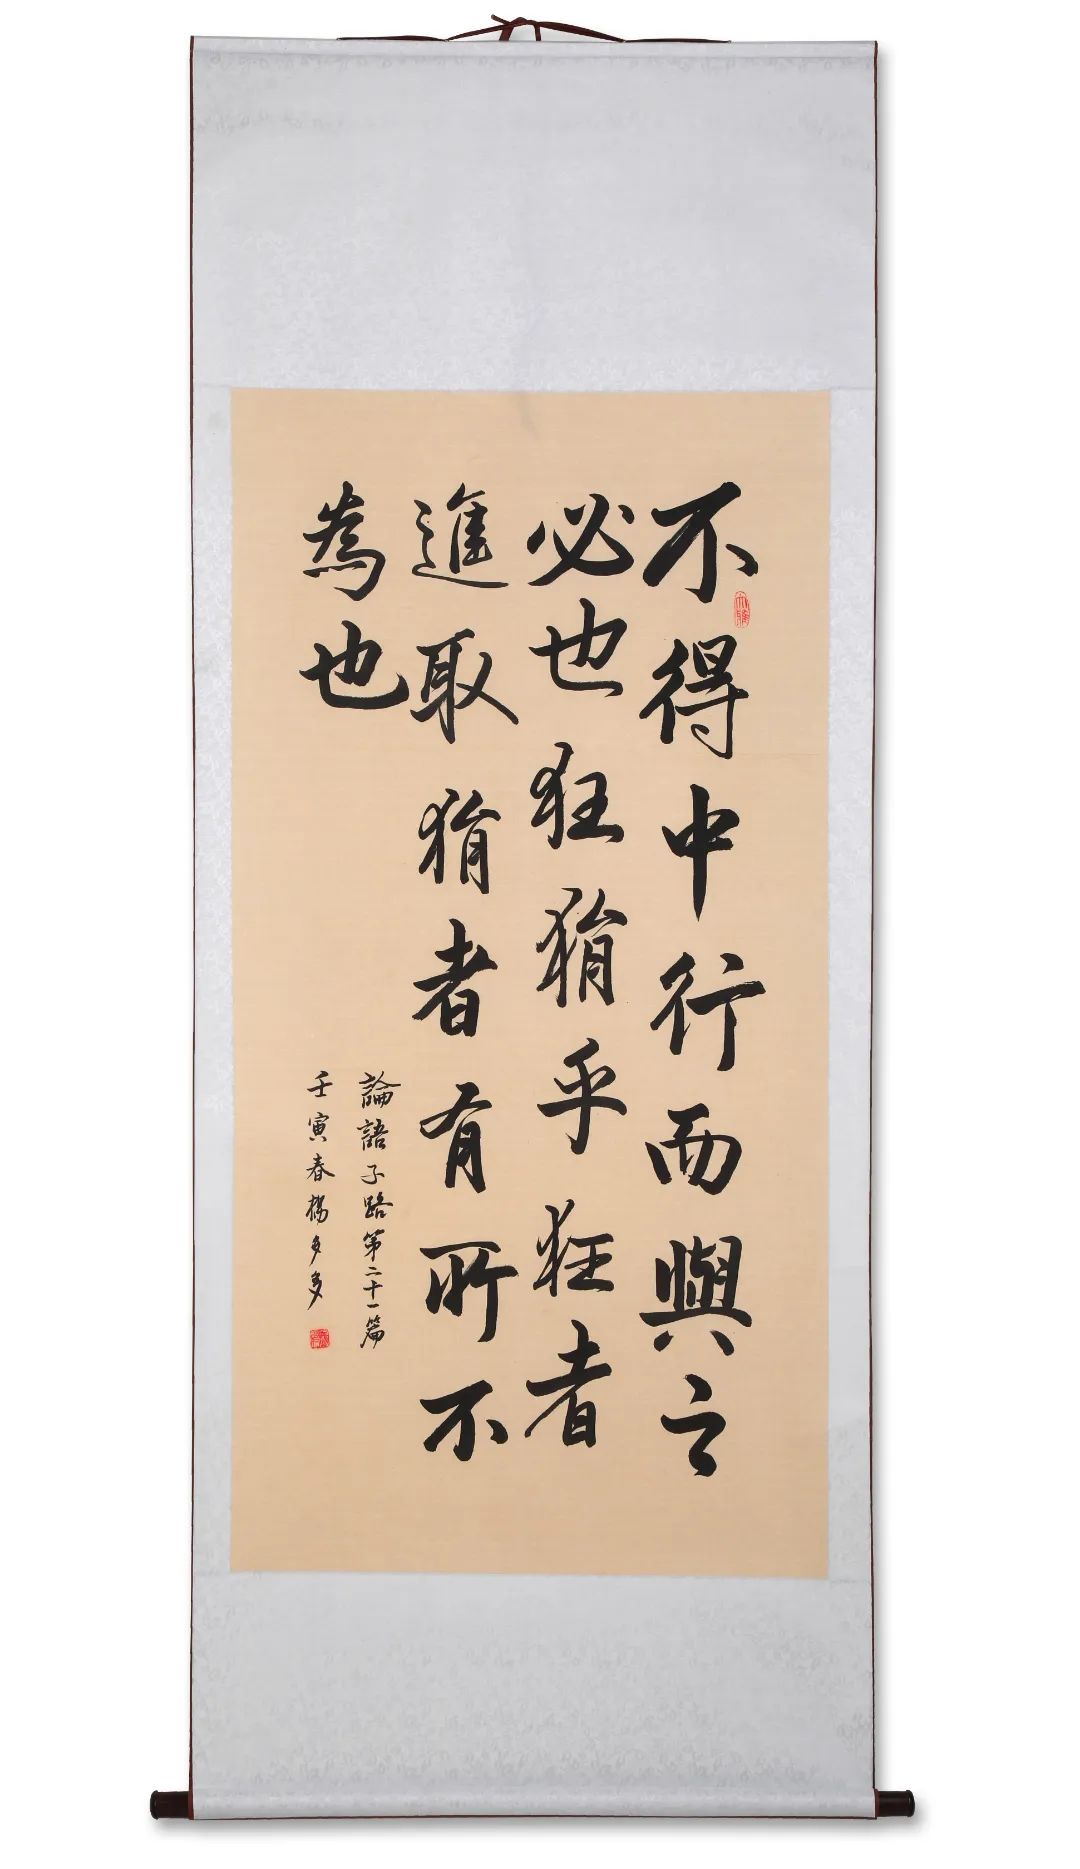 不得中行而與之
必也狂狷乎狂者
進取狷者有所不
為也
論語子路第二十一篇
壬寅春楊多多